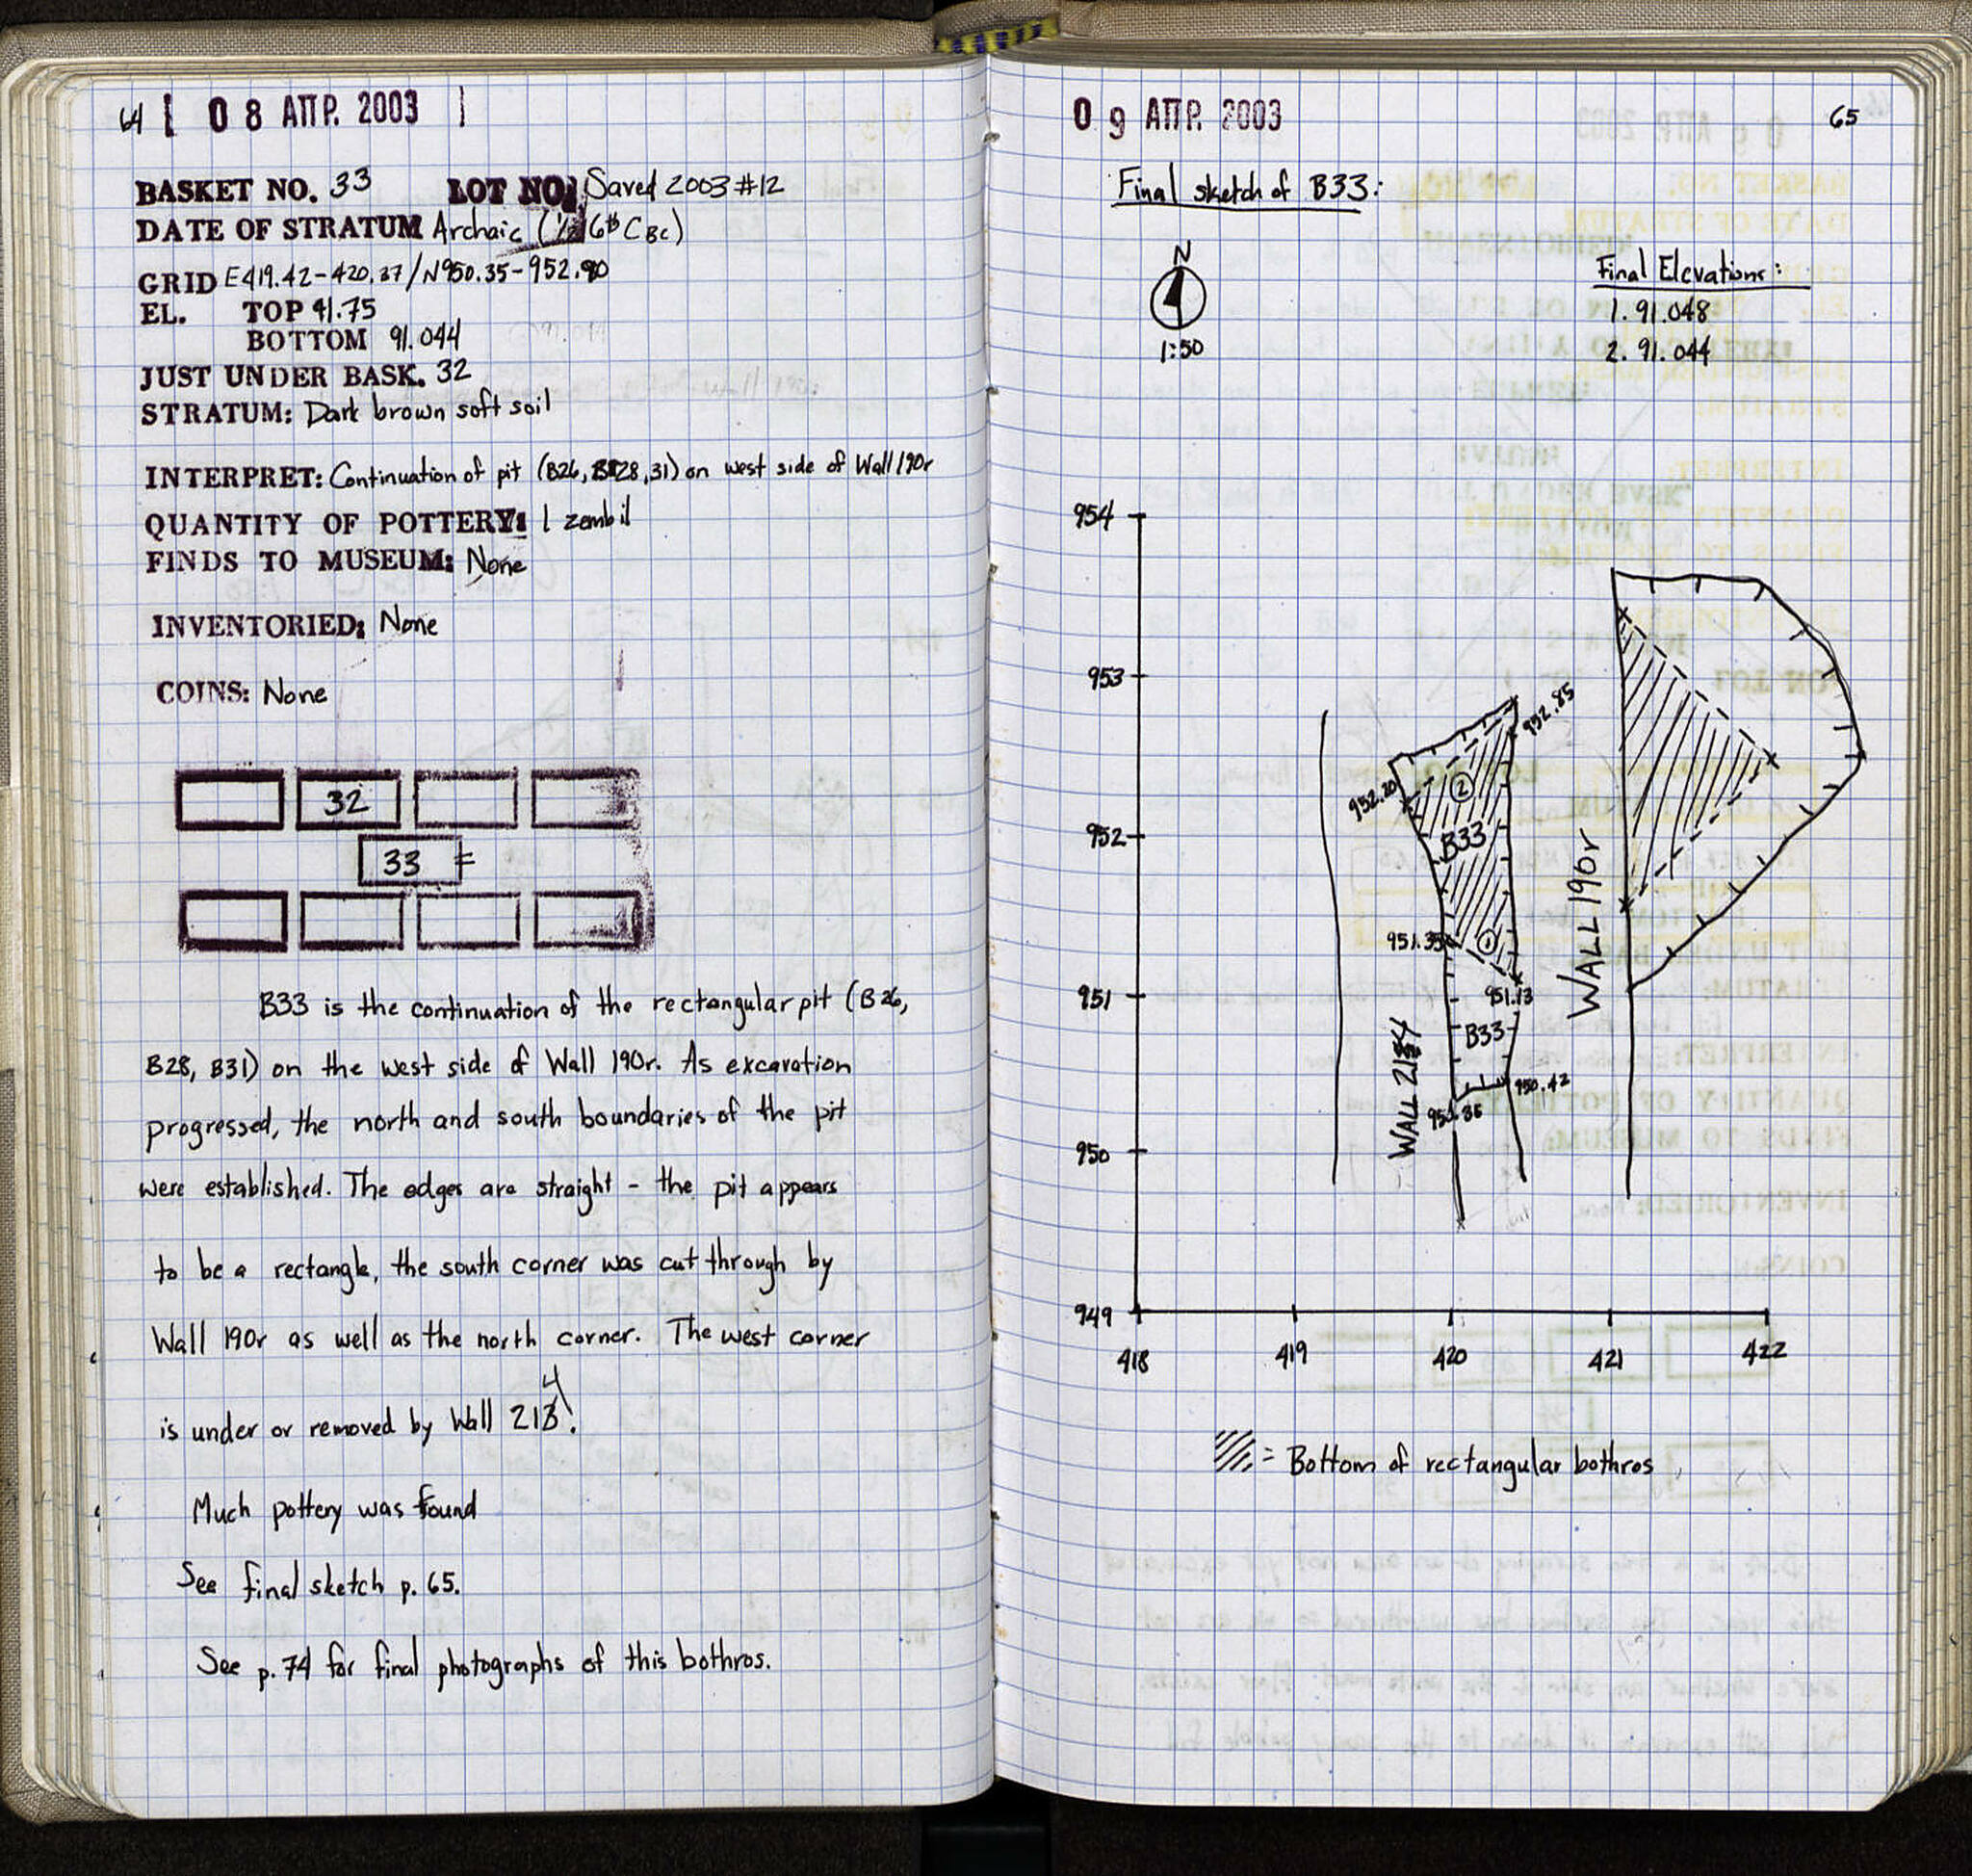 64 08 ΑΠΡ. 2003
BASKET NO. 33 LOT NO. Saved 2003 #12
DATE OF STRATUM Archaic (1/2 6th C BC)
GRID E419.42-420.37/N950.35-952.90
EL. TOP 91.75
BOTTOM 91.044
JUST UNDER BASK. 32
STRATUM: Dark brown soft soil
INTERPRET: Continuation of pit (B26, B28, 31) on west side of Wall 190r
QUANTITY OF POTTERY: 1 zembil
FINDS TO MUSEUM: None
INVENTORIED: None
COINS: None
32
33 =
B33 is the continuation of the rectangular pit (B26,
B28, B31) on the west side of Wall 190r. As excavation
progressed, the north and south boundaries of the pit
were established. The edges are straight - the pit appears
to be a rectangle, the south corner was cut through by
Wall 190r as well as the north corner. The west corner
is under or removed by Wall 214.
Much pottery was found
See final sketch p. 65.
See p. 74 for final photographs of this bothros.
09 ΑΠΡ. 2003 65
Final sketch of B33:
N
1:50
Final Elevations:
1. 91.048
2. 91.044
954
953
952
951
950
949
418 419 420 421 422
952.85
952.20
2
B33
951.35
1
951.13
B33
950.42
950.35
WALL 214
WALL 190r
= Bottom of rectangular bothros